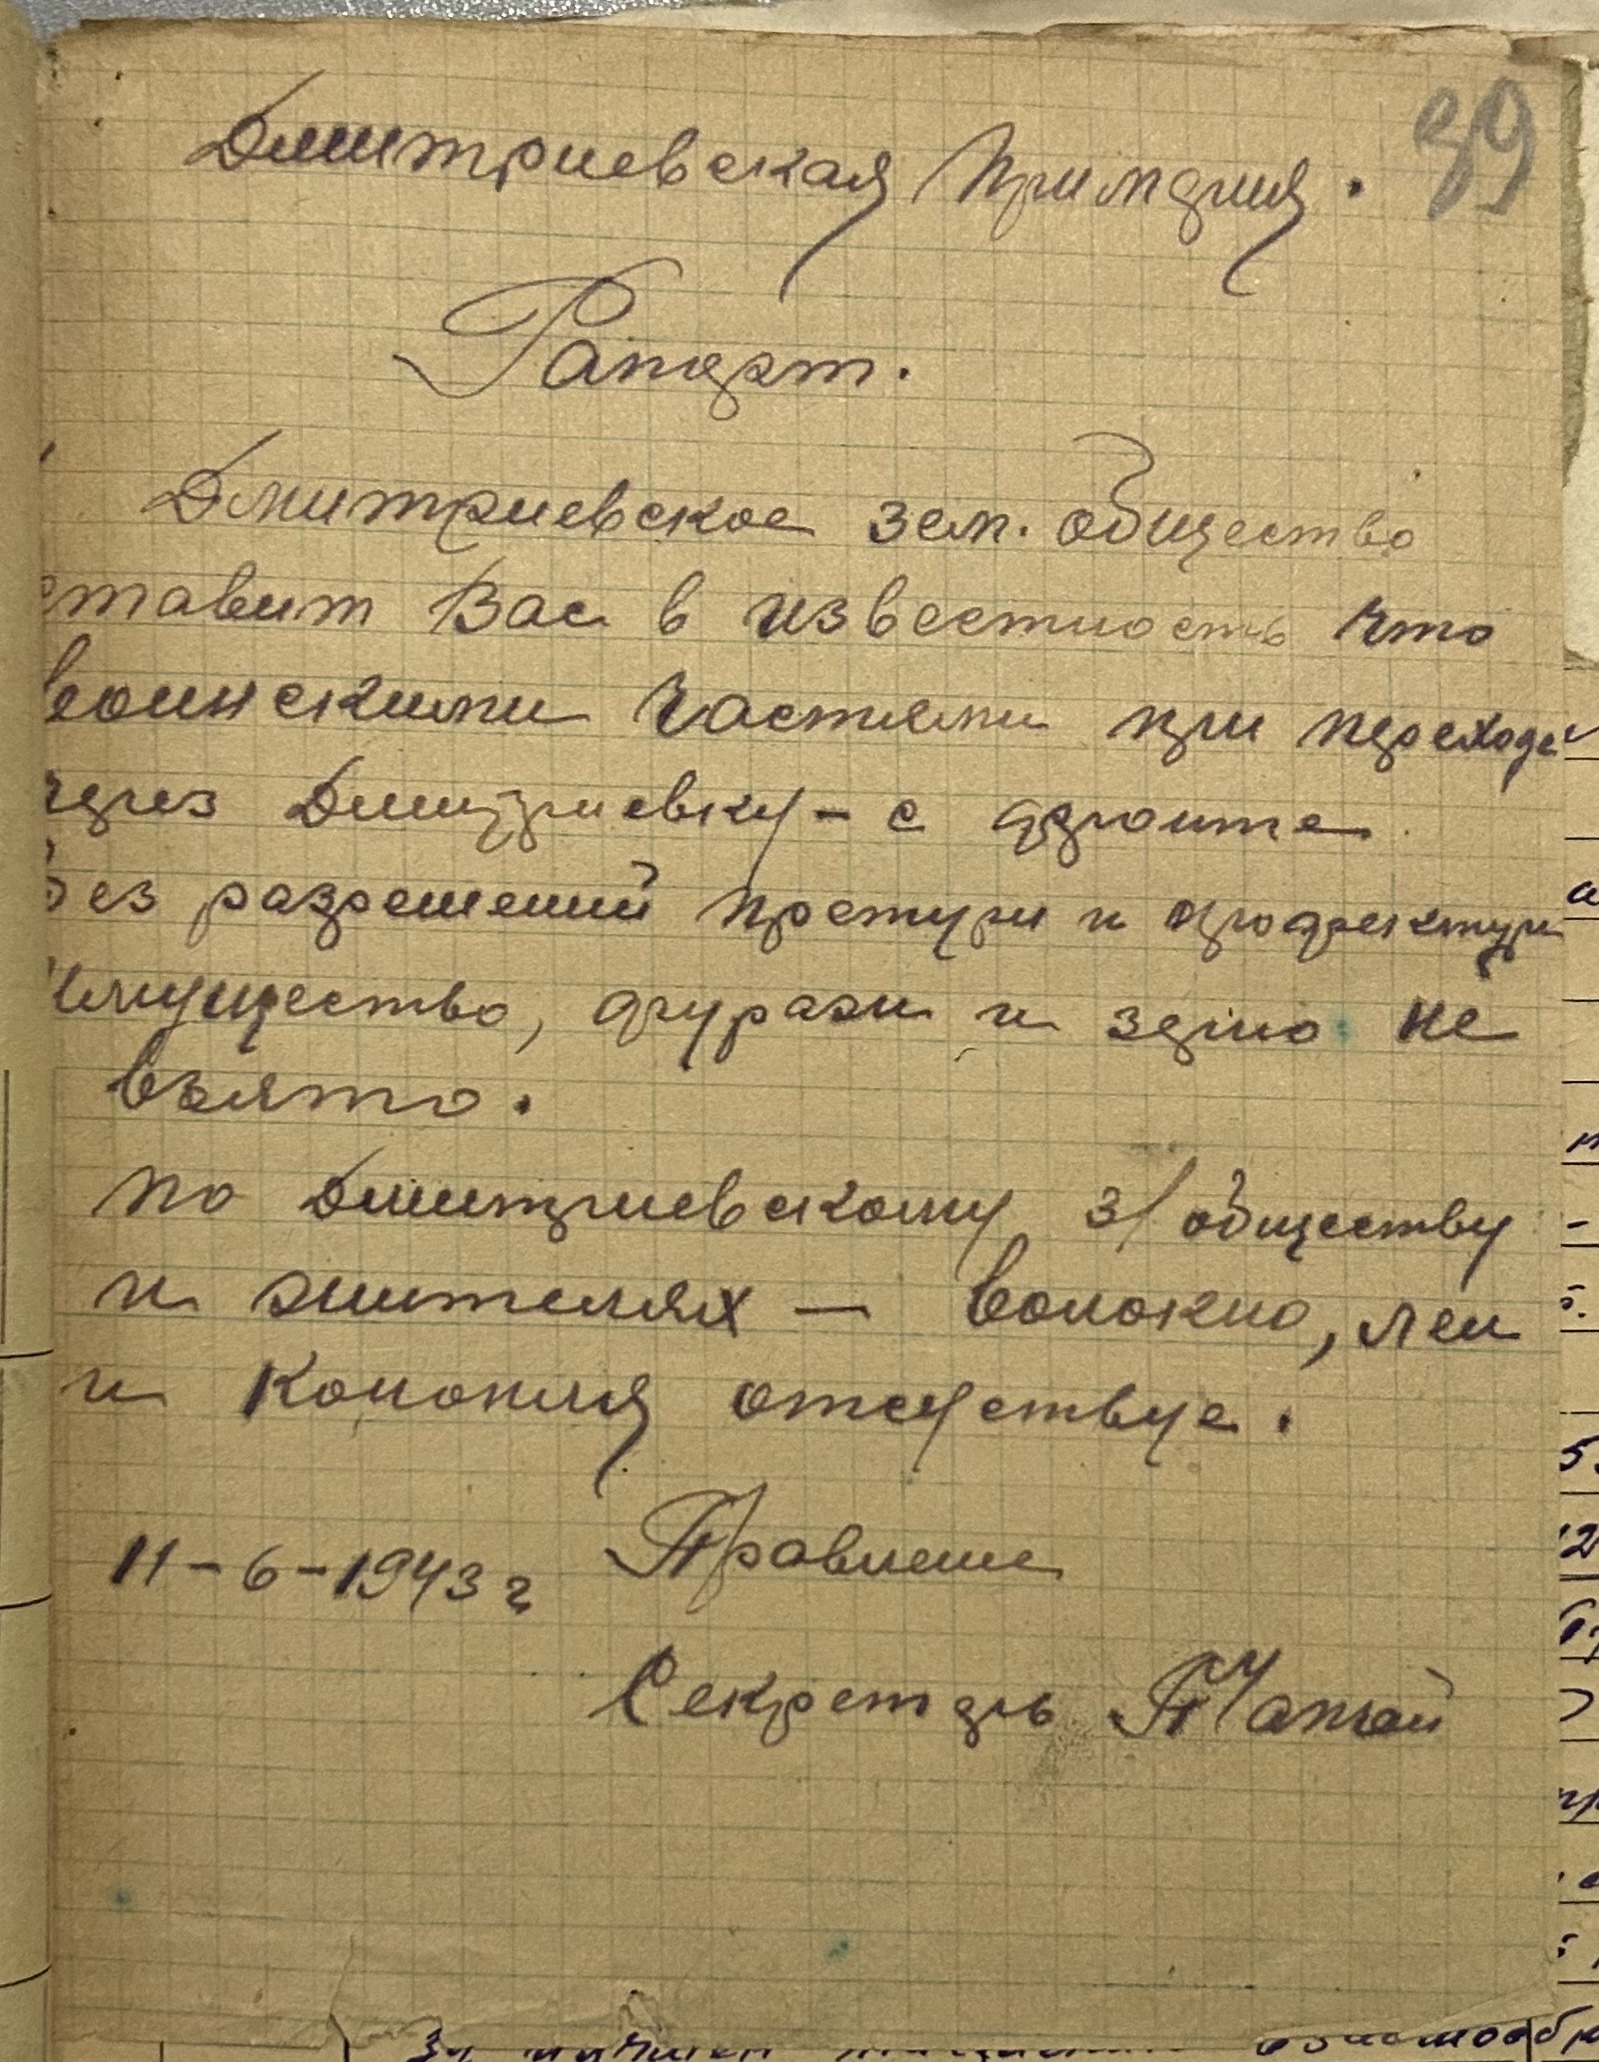 89
Дмитриевская Примария.
Рапорт.
Дмитриевское зем. общество
ставит Вас в известность что
воинскими частями при переходе
через Дмитриевку - с фронта
без разрешений претури и префектури
имущество, фуражи и зерно не
взято.
По Дмитриевскому з/обществу
и жителях - волокно, лен
и конопля отсуствуе.
11-6-1943 г Правление
Секретарь